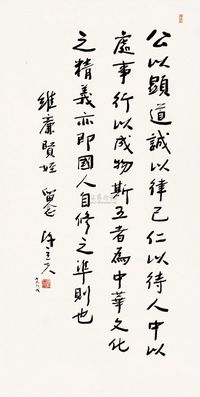 公以顯道誠以律己仁以待人中以
處事行以成物斯五者為中華文化
之精義亦即國人自修之準則也
維廉賢姪 留念 許立夫